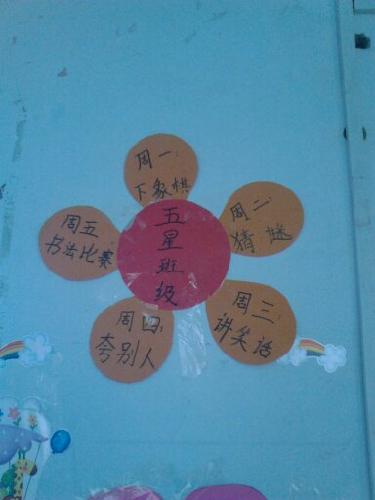 五
星
班
级
周一:
下象棋
周二:
猜谜
周三:
讲笑话
周四:
夸别人
周五
书法比赛